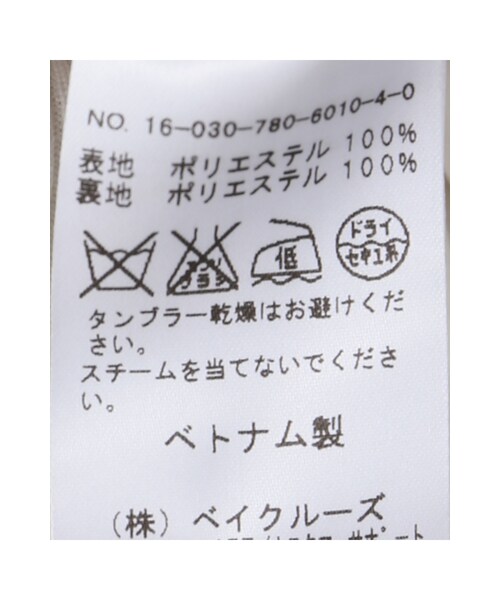 NO. 16-030-780-6010-4-0
表地 ポリエステル 100%
裏地 ポリエステル 100%
低 ドライ
セキユ系
タンブラー乾燥はお避けくだ
さい。
スチームを当てないでくださ
い。
ベトナム製
(株) ベイクルーズ